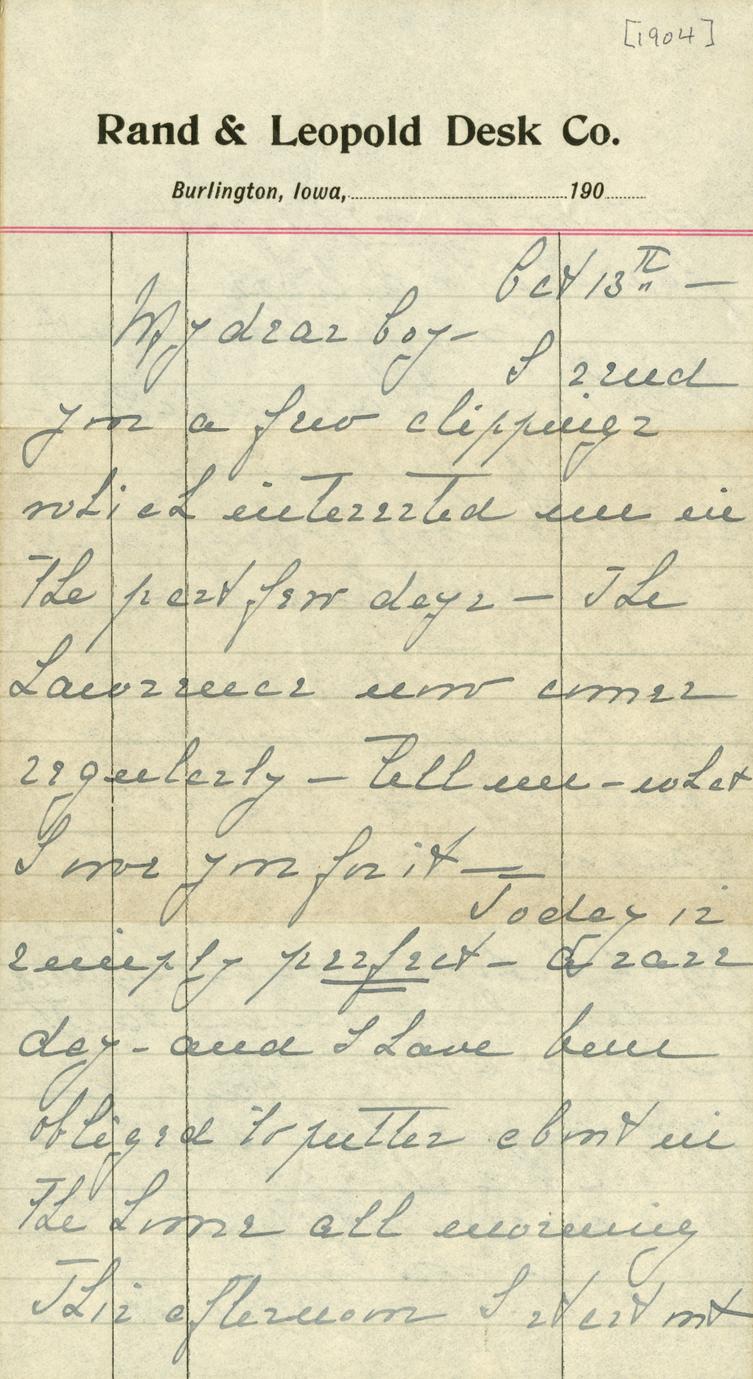 [1904]
Rand & Leopold Desk Co.
Burlington, Iowa, 190
Oct 13th —
My dear boy—
I send
you a few clippings
which interested me in
the past few days — The
Lawrence now comes
regularly — Tell me — what
I owe you for it —
Today is
simply perfect — A rare
day — and I have been
obliged to putter about in
the house all morning
This afternoon I start out